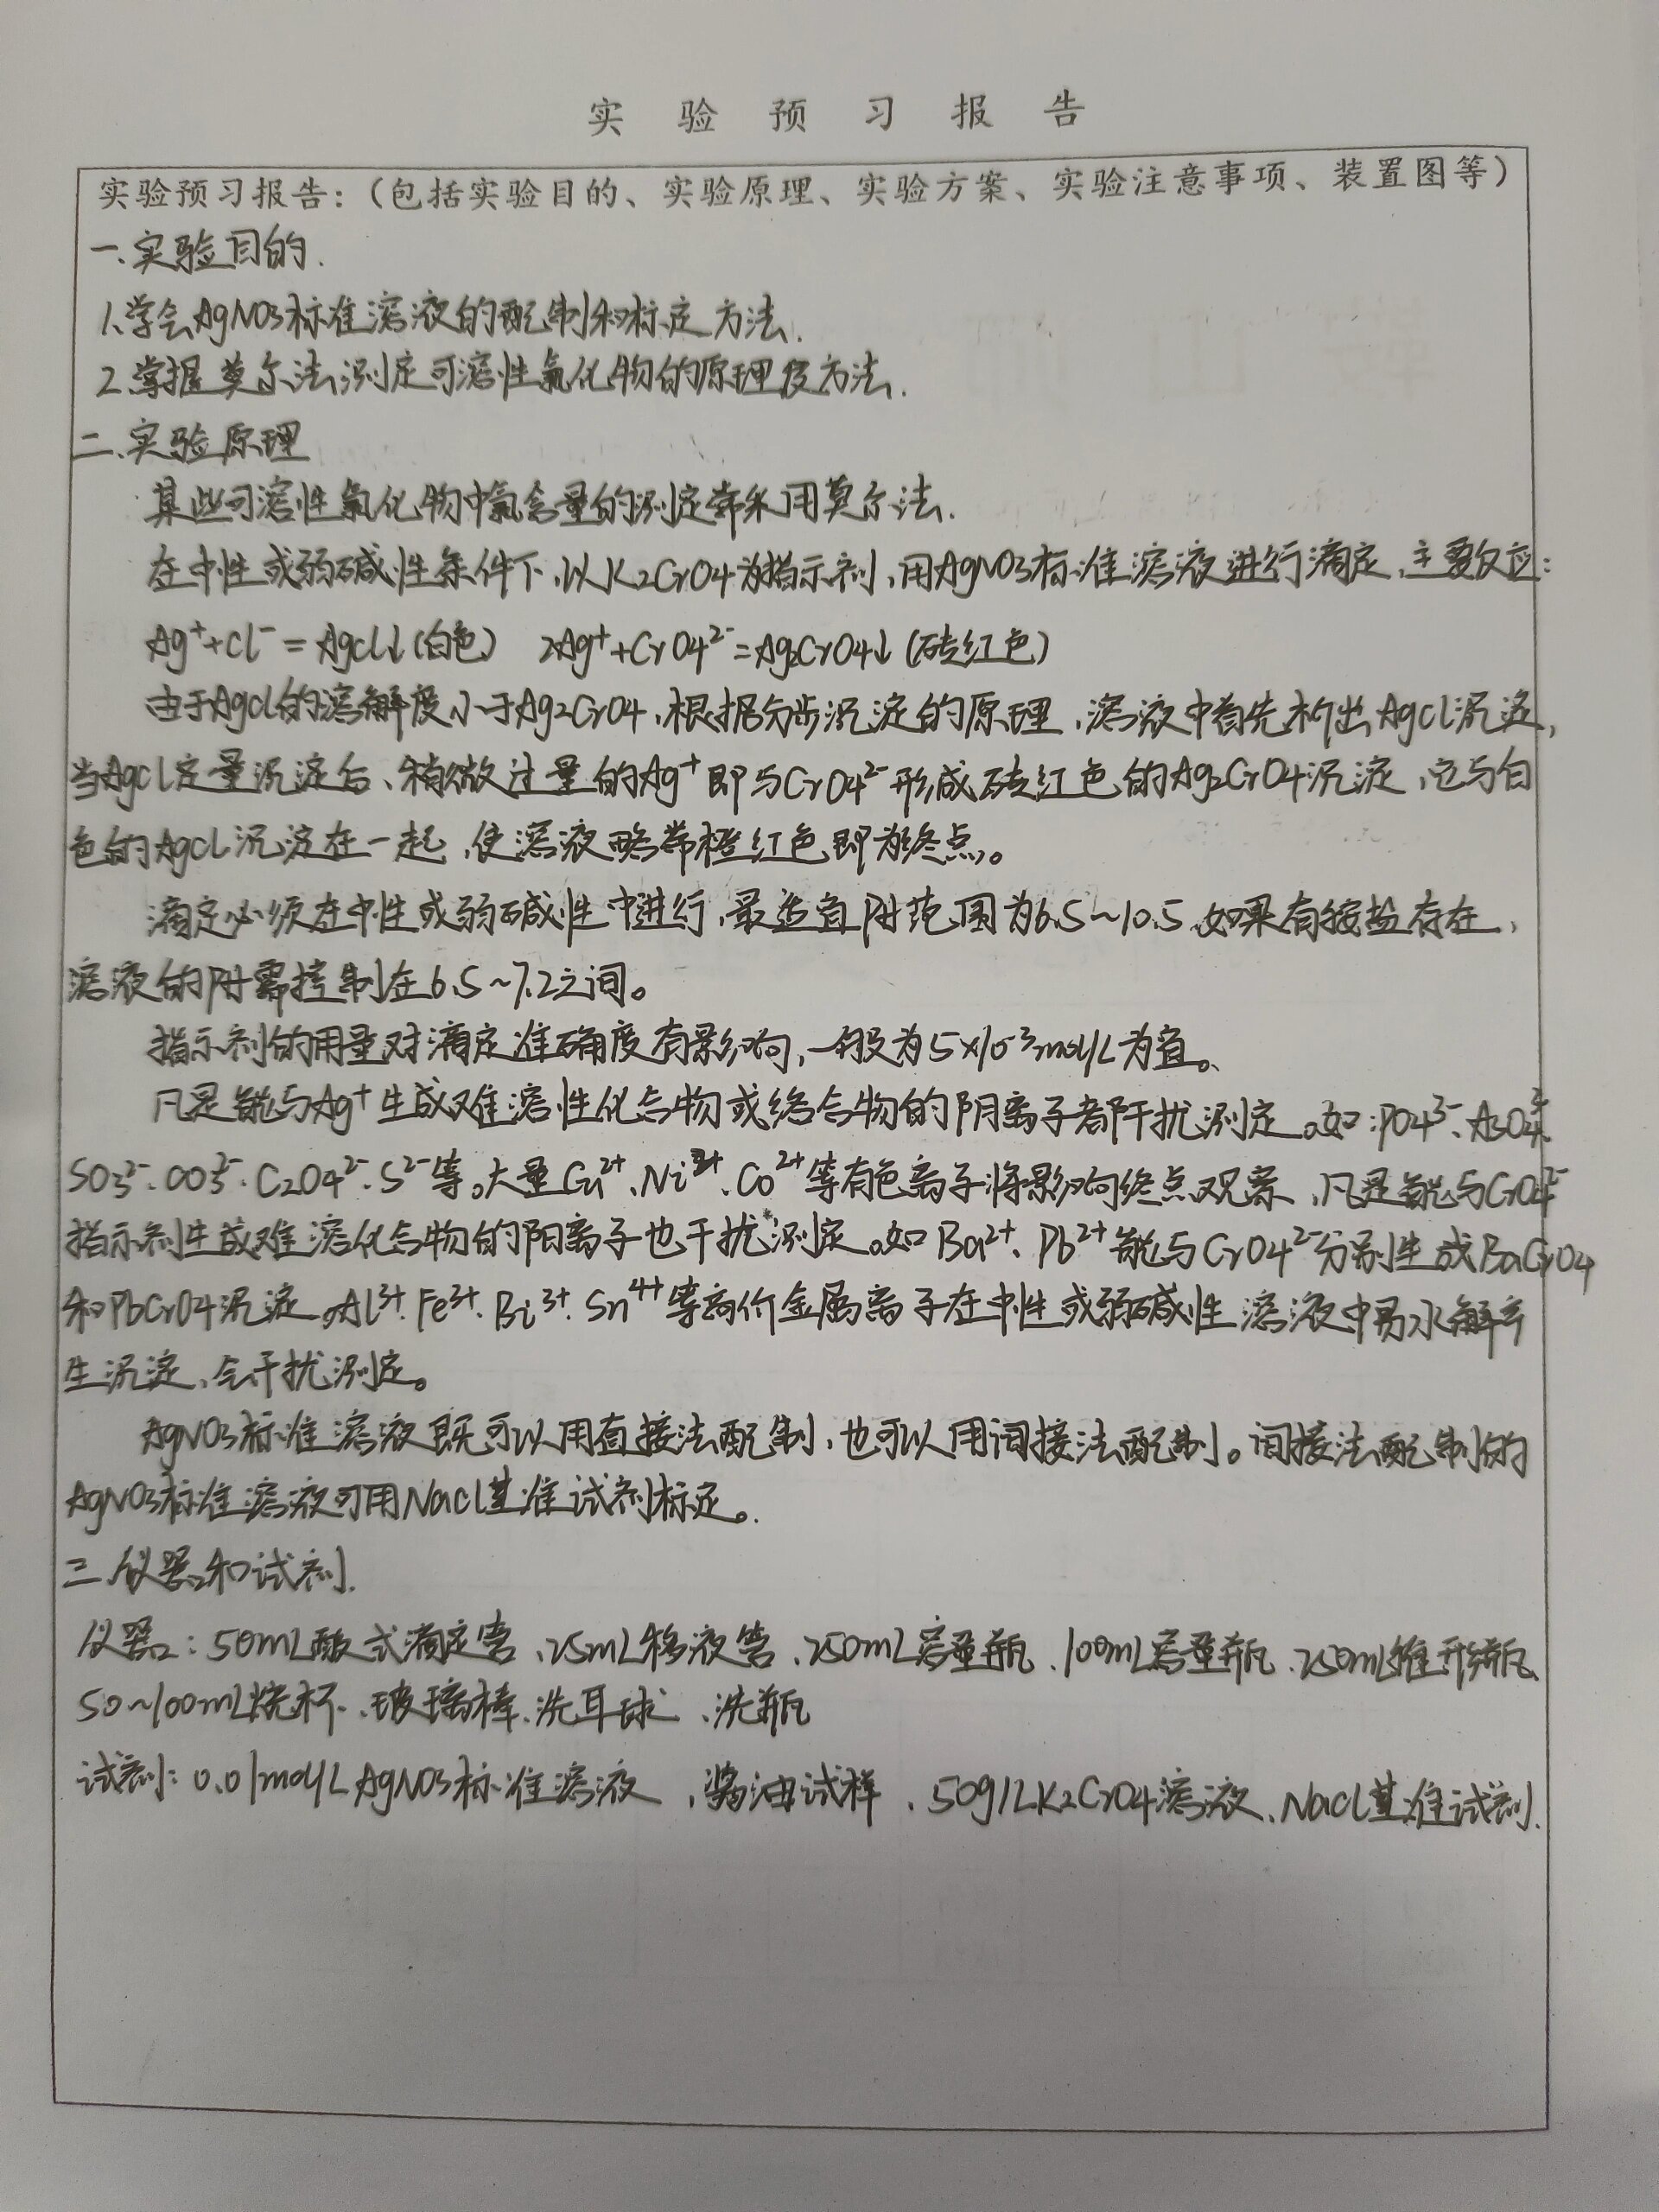 实验预习报告
实验预习报告：（包括实验目的、实验原理、实验方案、实验注意事项、装置图等）
一、实验目的.
1、学会AgNO3标准溶液的配制和标定方法.
2.掌握莫尔法测定可溶性氯化物的原理及方法.
二、实验原理
某些可溶性氯化物中氯含量的测定常采用莫尔法.
在中性或弱碱性条件下,以K2CrO4为指示剂,用AgNO3标准溶液进行滴定,主要反应:
Ag⁺+Cl⁻=AgCl↓(白色) 2Ag⁺+CrO4²⁻=Ag2CrO4↓(砖红色)
由于AgCl的溶解度小于Ag2CrO4,根据分步沉淀的原理,溶液中首先析出AgCl沉淀,
当AgCl定量沉淀后、稍微过量的Ag⁺即与CrO4²⁻形成砖红色的Ag2CrO4沉淀,它与白
色的AgCl沉淀在一起,使溶液略带橙红色即为终点。
滴定必须在中性或弱碱性中进行,最适宜PH范围为6.5~10.5,如果有铵盐存在,
溶液的PH需控制在6.5~7.2之间。
指示剂的用量对滴定准确度有影响,一般为5×10⁻³mol/L为宜。
凡是能与Ag⁺生成难溶性化合物或络合物的阴离子都干扰测定。如:PO4³⁻、AsO4³⁻
SO3²⁻、CO3²⁻、C2O4²⁻、S²⁻等。大量Cu²⁺、Ni²⁺、Co²⁺等有色离子将影响终点观察,凡是能与CrO4²⁻
指示剂生成难溶化合物的阳离子也干扰测定。如Ba²⁺、Pb²⁺能与CrO4²⁻分别生成BaCrO4
和PbCrO4沉淀。Al³⁺、Fe³⁺、Bi³⁺、Sn⁴⁺等高价金属离子在中性或弱碱性溶液中易水解产
生沉淀,会干扰测定。
AgNO3标准溶液既可以用直接法配制,也可以用间接法配制。间接法配制的
AgNO3标准溶液可用NaCl基准试剂标定。
三、仪器和试剂.
仪器:50mL酸式滴定管、25mL移液管、250mL容量瓶、100mL容量瓶、250mL锥形瓶、
50~100mL烧杯、玻璃棒、洗耳球、洗瓶
试剂:0.01mol/L AgNO3标准溶液,酱油试样、50g/LK2CrO4溶液、NaCl基准试剂.